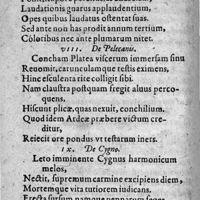 Laudationis guaros applaudentium,
Opes quibus laudatus ostentat suas.
Sed ante non has prodit annum tertium,
Coloribus nec ante plumarum nitet.
VIII. De Pelecanis.
Concham Platea viscerum immersam sinu
Reuomit, cat testis eximens,
Hinc esculenta rite colligit sibi.
Nam claustra postquam fregit aluus percoquens,
Hiscunt plicæ, quas nexuit, conchilium.
Quod idem Ardeæ præbere victum creditur,
Reiecit ore pondus vt testarum iners.
IX. De Cygno.
Leto imminente Cygnus harmonicum melos,
Nectit, supremum carmine excipiens diem,
Mortemque vita tutiorem iudicans.
Erecta sursum namque pennarum